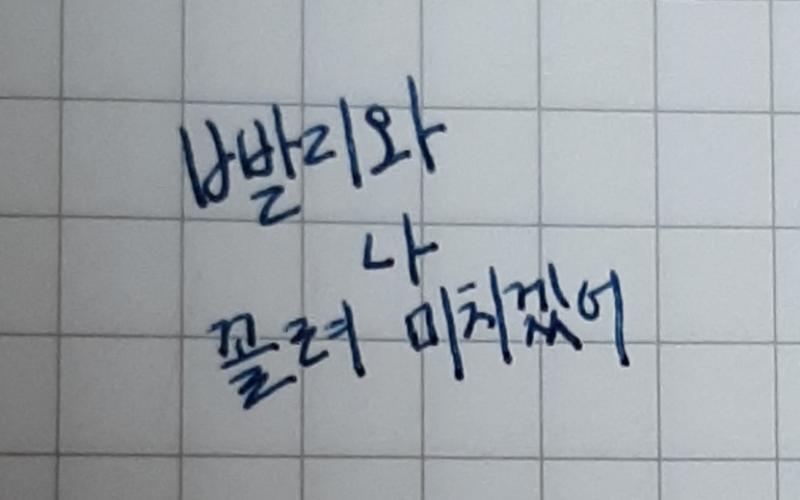 ㅂ발리와
나
꼴려 미치겠어